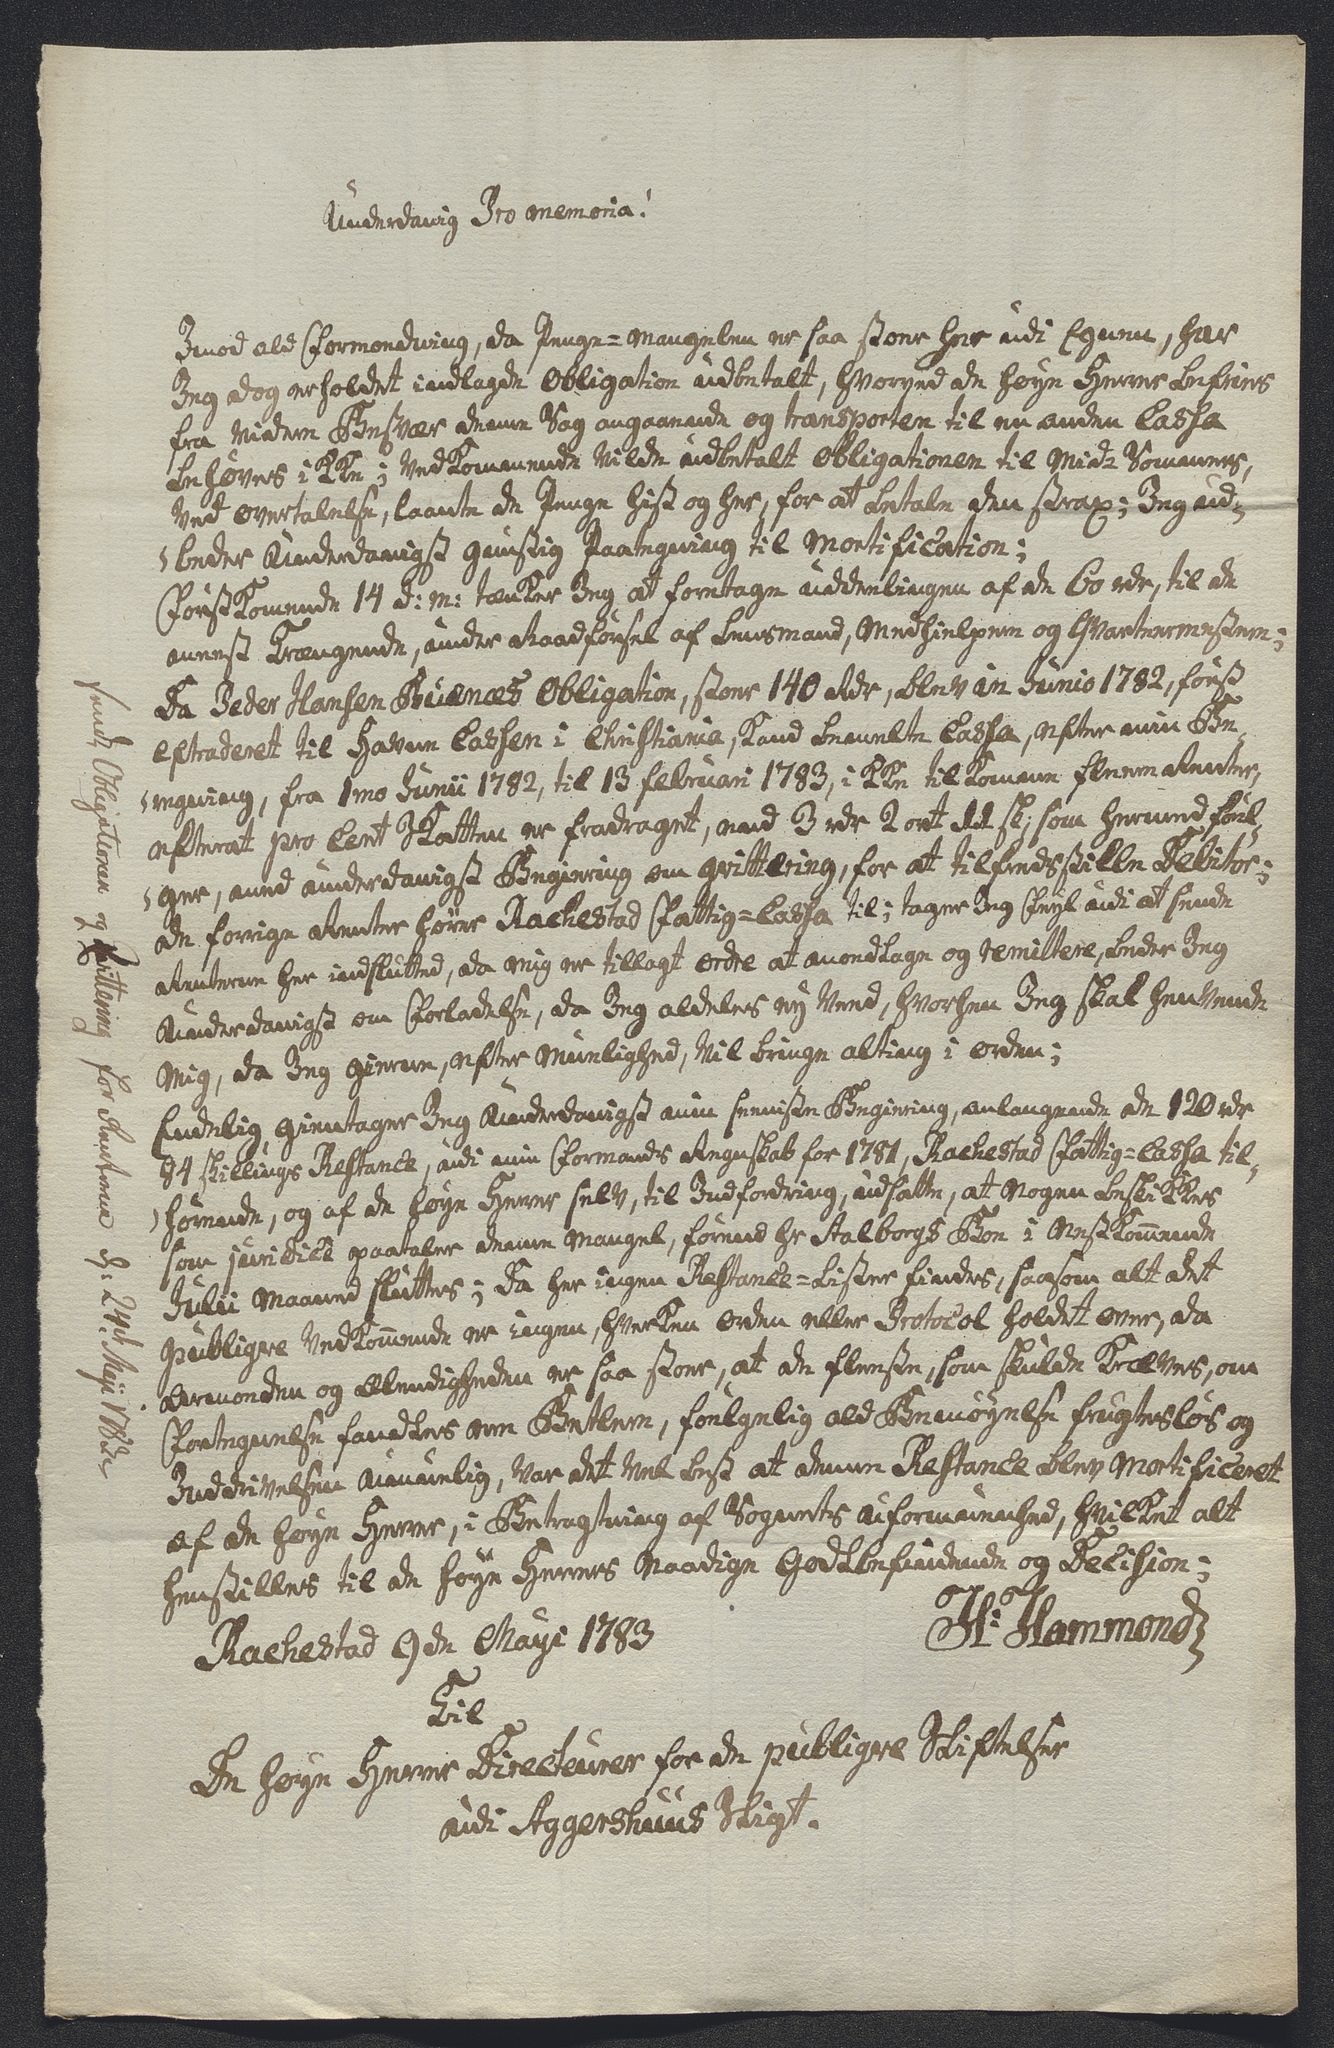 Underdanig Pro memoria!
Imod ald Formodning, da Penge=Mangelen er saa stoer her udi Egnen, har
Jeg dog erholdet indlagde Obligation udbetalt, hvorved de høye Herrer befries
fra videre Besvær denne Sag angaaende og transporten til en anden Cassa
behøves ikke; Vedkommende vilde udbetalt Obligationen til Mids Sommers,
ved overtalelse, laante de Penge hist og her, for at betale den strax; Jeg ud-
beder Underdanigst gunstig Paategning til Mortification;
Førstkomende 14 d: m: tænker Jeg at foretage uddeelingen af de 60 rdr, til de
meest Trængende, under Raadførsel af Lensmand, Medhielpere og Qvarteermestere;
Da Peder Hansen Obligation, stoer 140 Rdr, blev in Junio 1782, først
extraderet til Havne Cassen i Christiania, kand bemelte Cassa, efter min Be-
regning, fra 1mo Junii 1782, til 13 februari 1783, ikke tilkomme fleere Renter,
efterat pro Cent Skatten er fradraget, end 3 rdr 2 ort 11 sk; som hermed føl-
ger, med underdanigst Begiering om qvittering, for at tilfredsstille Debitor;
de forrige Renter hører Rachestad Fattig=Cassa til; tager Jeg Feyl udi at sende
Renterne her indslutted, da mig er tillagt Ordre at modtage og remittere, beder Jeg
Underdanigst om Forladelse, da Jeg aldeles ey veed, hvorhen Jeg skal henvende
mig, da Jeg gierne, efter Muelighed, vil bringe alting i Orden;
Endelig, gientager Jeg Underdanigst min seeniste Begiering, anlangende de 120 rdr
84 skillings Restance, udi min Formands Regnskab for 1781, Rachestad Fattig=Cassa til-
hørende, og af de høye Herrer selv, til Indfordring, udsatte, at nogen beskikkes
som juridice paataler denne Mangel, førend Hr Aalborgs Boe i nestkommende
Julii Maaned sluttes; da her ingen Restance=Lister findes, saasom alt det
publiqve Vedkommende er ingen, hverken Orden eller Protocol holdet over, da
Armoden og Elendigheden er saa stoer, at de fleeste, som skulde kræves, om
Foregivelse fandtes ere Betlere, følgelig ald Bemøyelse frugtesløs og
Inddrivelsen Umuelig, var det vel best at denne Restance blev Mortificeret
af de høye Herrer, i Betragtning af Sognets uformuenhed, hvilket alt
henstilles til de høye Herrers Naadige Godtbefindende og Decision;
Rachestad 9de Maji 1783
H: Hammond
Til
De høye Herrer Directeurer for de publiqve Stiftelser
udi Aggershuus Stigt.
sendt Obligationen og Qvittering for Renterne d: 24d Maji 1783